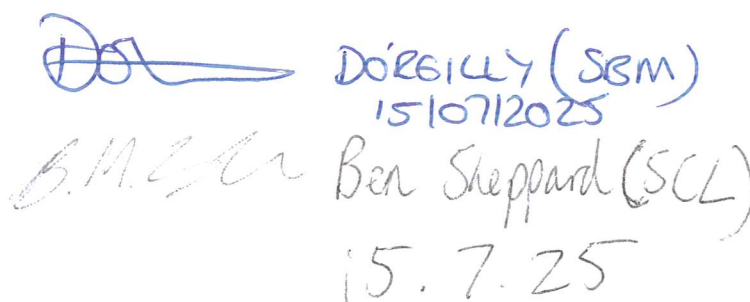 DO'REILLY (SBM)
15/07/2025
Ben Sheppard (SCL)
15.7.25